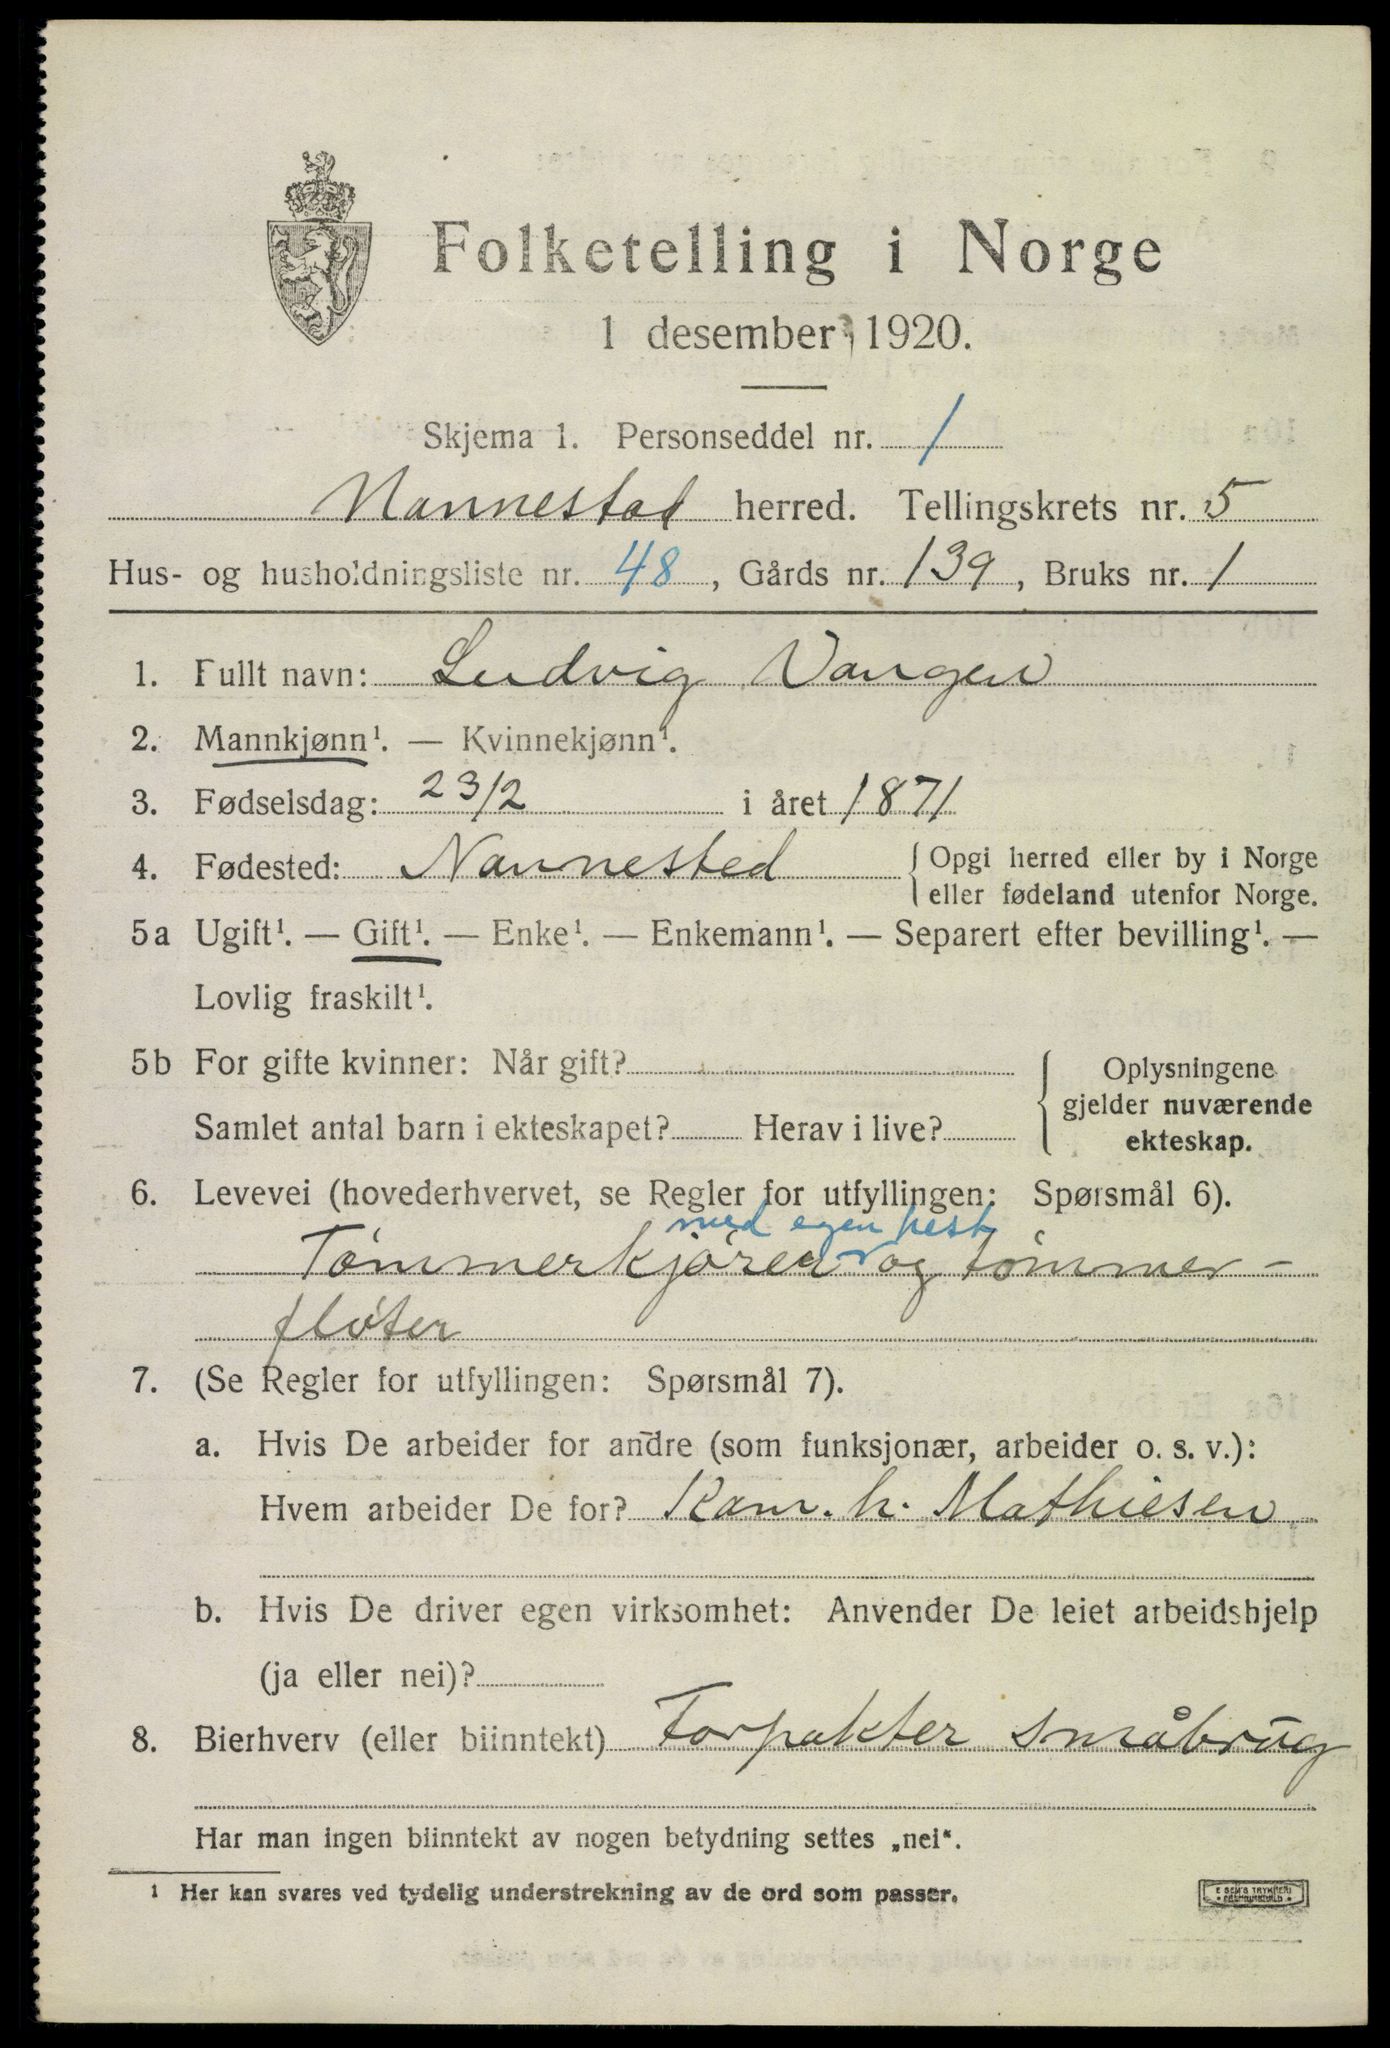 Folketelling i Norge
1 desember 1920.
Skjema 1. Personseddel nr. 1
Nannestad herred. Tellingskrets nr. 5
Hus- og husholdningsliste nr. 48, Gårds nr. 139, Bruks nr. 1
1. Fullt navn: Ludvig Vangen
2. Mannkjønn¹. — Kvinnekjønn¹.
3. Fødselsdag: 23/2 i året 1871
4. Fødested: Nannestad { Opgi herred eller by i Norge
eller fødeland utenfor Norge.
5a Ugift¹. — Gift¹. — Enke¹. — Enkemann¹. — Separert efter bevilling¹. —
Lovlig fraskilt¹.
5b For gifte kvinner: Når gift?
Samlet antal barn i ekteskapet? Herav i live?
{ Oplysningene
gjelder nuværende
ekteskap.
6. Levevei (hovederhvervet, se Regler for utfyllingen: Spørsmål 6).
med egen hest
Tømmerkjører og tømmer-
fløter
7. (Se Regler for utfyllingen: Spørsmål 7).
a. Hvis De arbeider for andre (som funksjonær, arbeider o. s. v.):
Hvem arbeider De for? Kam. h. Mathiesen
b. Hvis De driver egen virksomhet: Anvender De leiet arbeidshjelp
(ja eller nei)?
8. Bierhverv (eller biinntekt) Forpakter småbrug
Har man ingen biinntekt av nogen betydning settes „nei“.
¹ Her kan svares ved tydelig understrekning av de ord som passer.